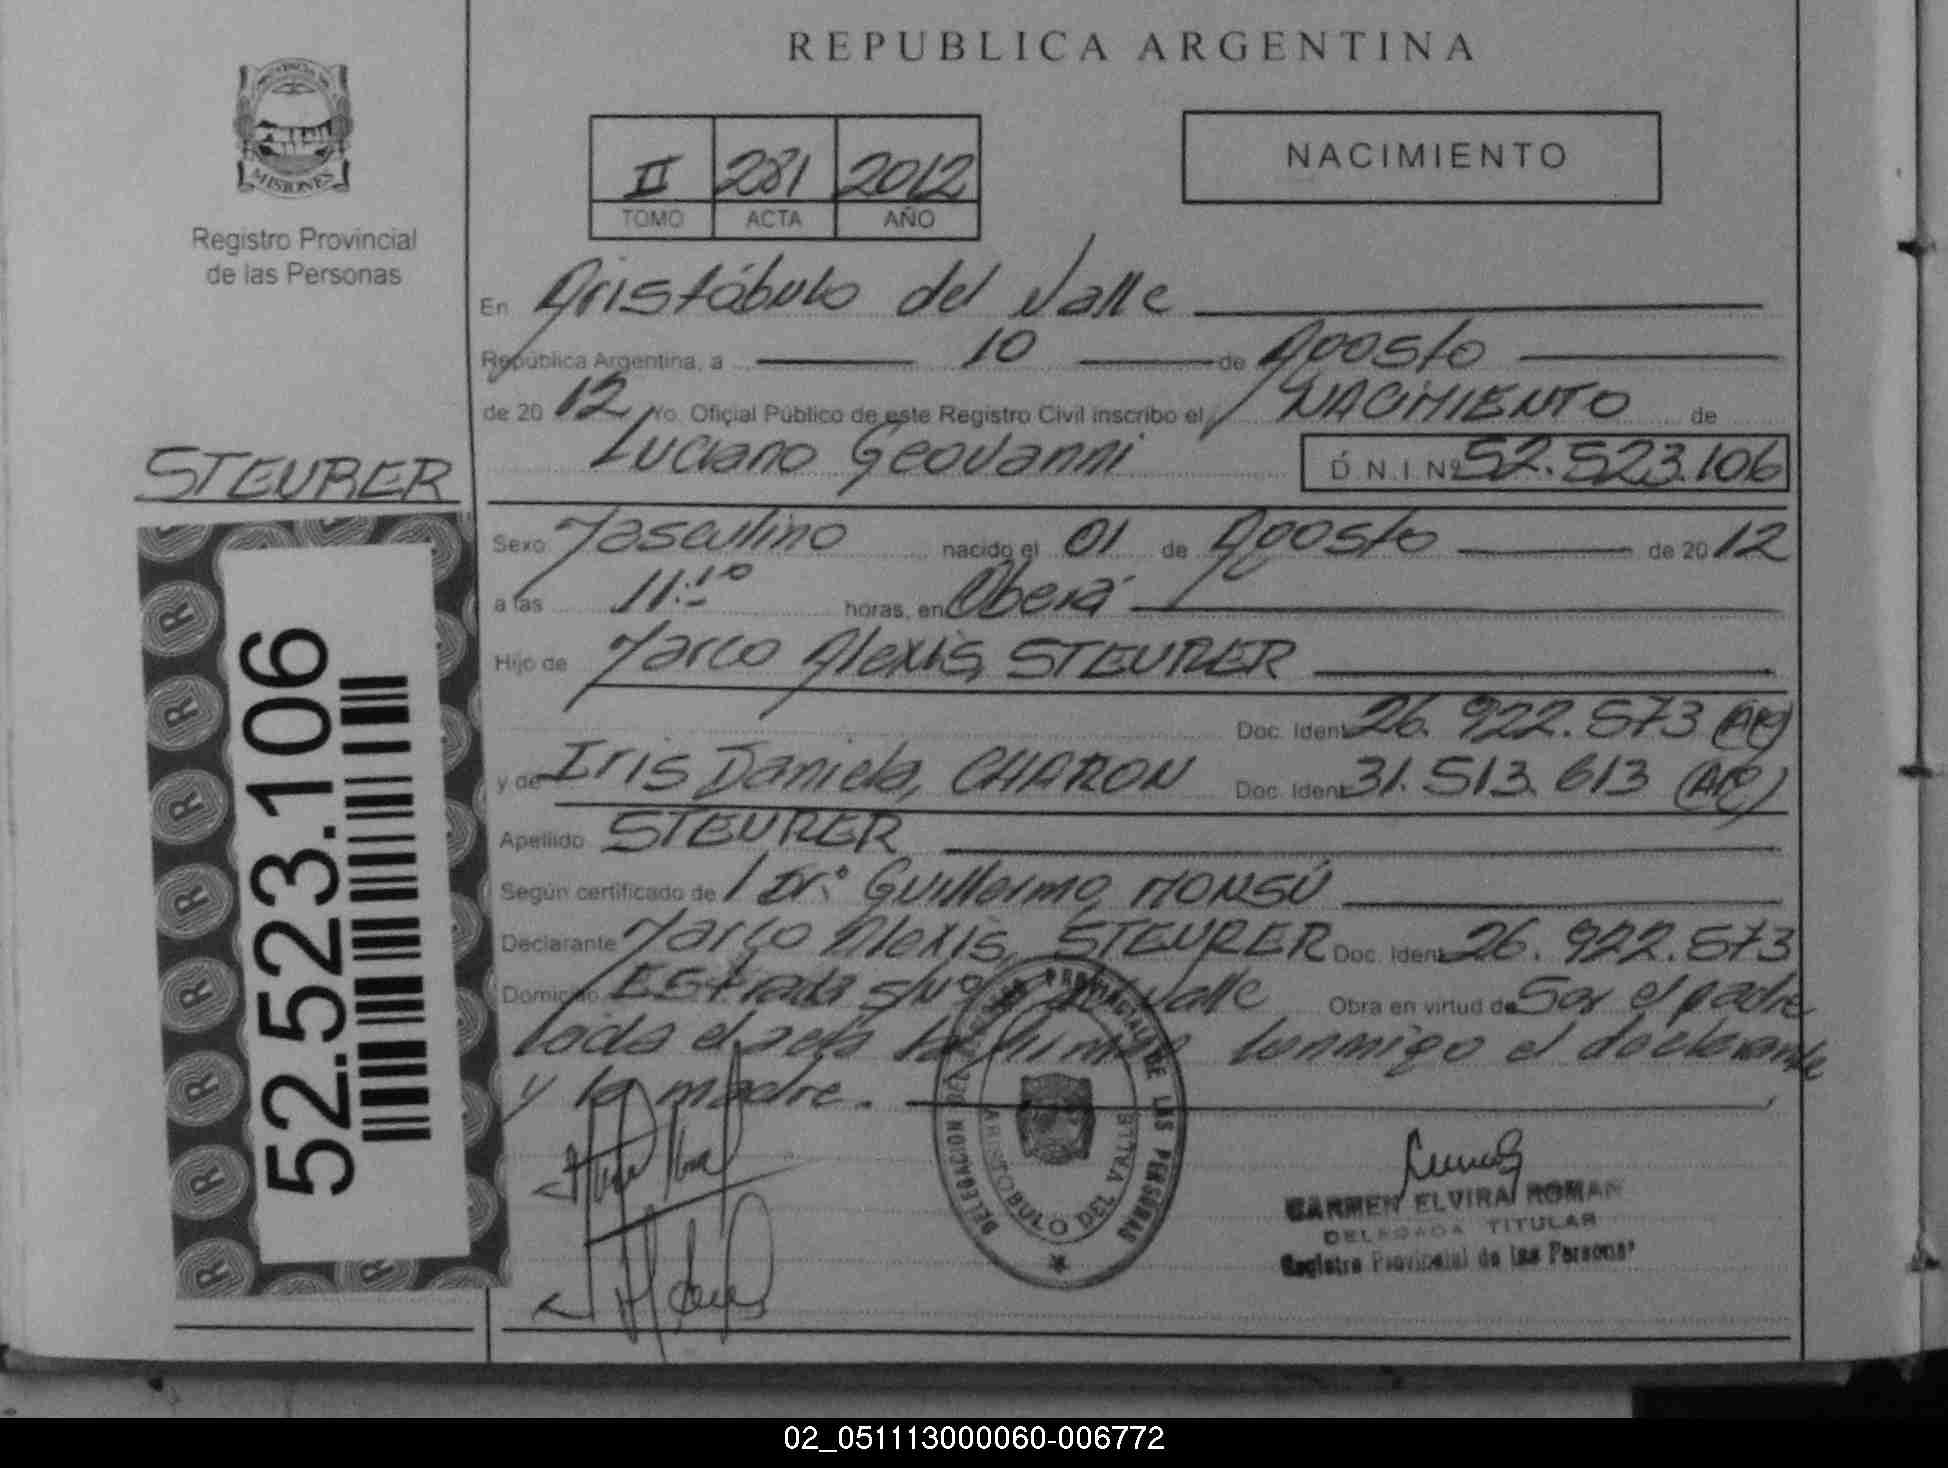 REPUBLICA ARGENTINA
MISIONES
Registro Provincial
de las Personas
II 281 2012
TOMO ACTA AÑO
NACIMIENTO
En Aristóbulo del Valle
República Argentina, a 10 de Agosto
de 20 12 Yo. Oficial Público de este Registro Civil inscribo el NACIMIENTO de
Luciano Geovanni D.N.I. Nº 52.523.106
STEURER
Sexo Masculino nacido el 01 de Agosto de 20 12
a las 11:10 horas, en Oberá
Hijo de Marco Alexis, STEURER
Doc. Ident 26.922.573 (AR)
y de Iris Daniela, CHARON Doc. Ident 31.513.613 (AR)
Apellido STEURER
Según certificado de Dr. Guillermo MONSÚ
Declarante Marco Alexis, STEURER Doc. Ident 26.922.573
Domicilio Estrada s/nº Valle Obra en virtud de Ser el padre
Leida el acta la firman conmigo el declarante
y la madre.
52.523.106
R R R R R R R R R
DELEGACION DEL REGISTRO PROVINCIAL DE LAS PERSONAS
ARISTOBULO DEL VALLE
CARMEN ELVIRA ROMAN
DELEGADA TITULAR
Registro Provincial de las Personas
02_051113000060-006772